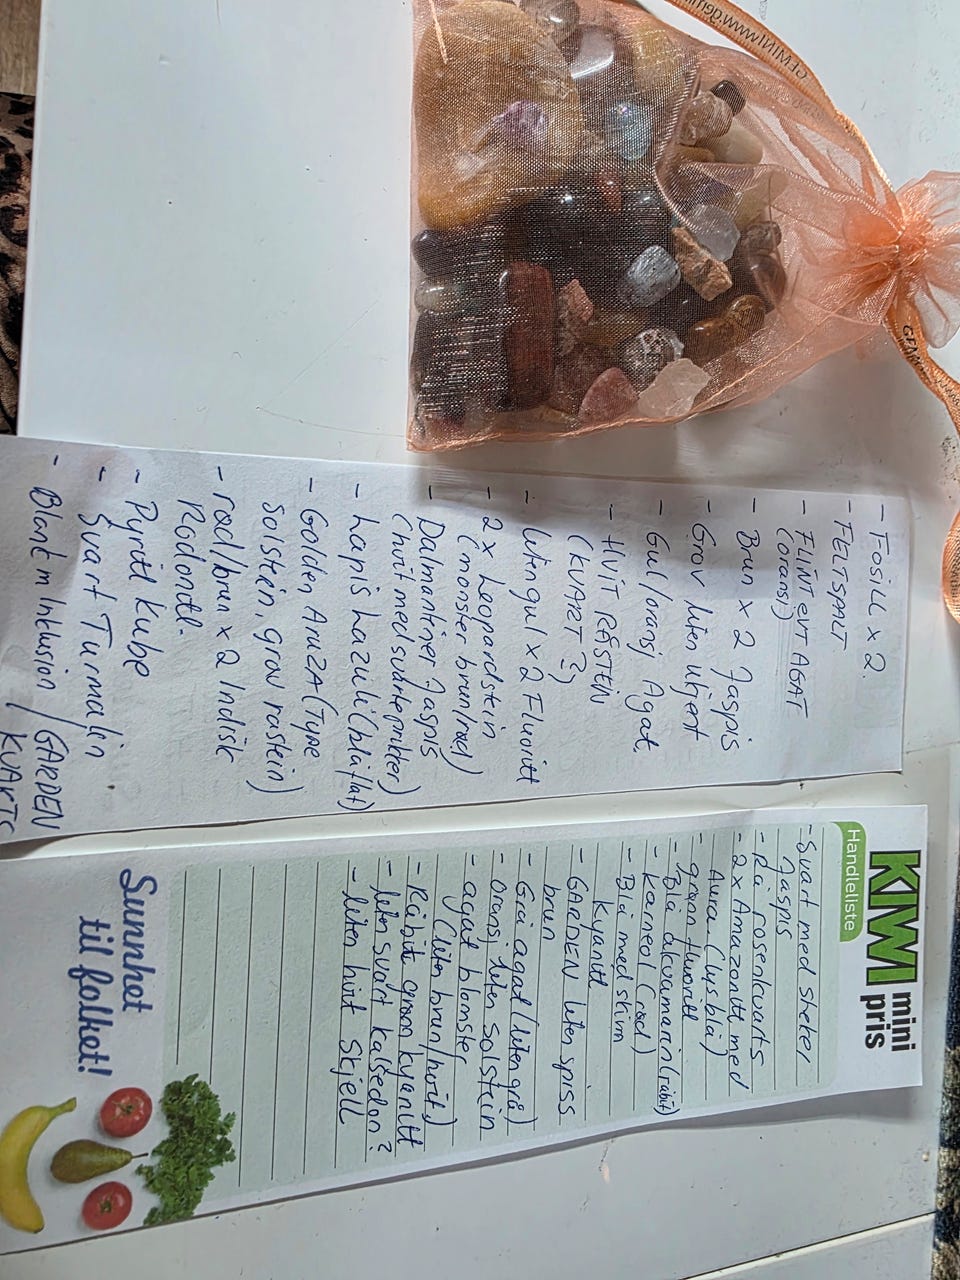 GEMINI www.gemini
GEMINI
- FOSILL x 2.
- FELTSPALT.
- FLINT EVT AGAT
(oransj)
- Brun x 2 Jaspis
- Grov liten ukjent
- Gul/oransj Agat.
- HVIT RÅSTEIN
(KVART ?)
- liten gul x 2 Fluoritt
- 2x Leopardstein
(mønster brun/rød)
- Dalmantiner Jaspis
(hvit med svarteprikker)
- Lapis Lazuli (blå flat)
- Golden (Type
Solstein, grov råstein)
- rød/brun x 2 Indisk
Rodonitt.
- Pyritt Kube
- Svart Turmalin
- Blank m Inklusion / GARDEN
KVARTS
KIWI mini
pris
Handleliste
- Svart med steker
Jaspis
- Rå rosenkvarts
- 2x Amazonitt med
Aura (lysblå)
- grønn fluoritt
- Blå akvamarin (råbit)
- Karneol (rød)
- Blå med strim
Kyanitt
- GARDEN liten spiss
brun
- Grå agat (liten grå)
- Oransj liten solstein
- agat blomster
(liten brun/hvit)
- Råbit grønn kyanitt
- liten svart kalsedon?
- liten hvit skjell
Sunnhet
til folket!